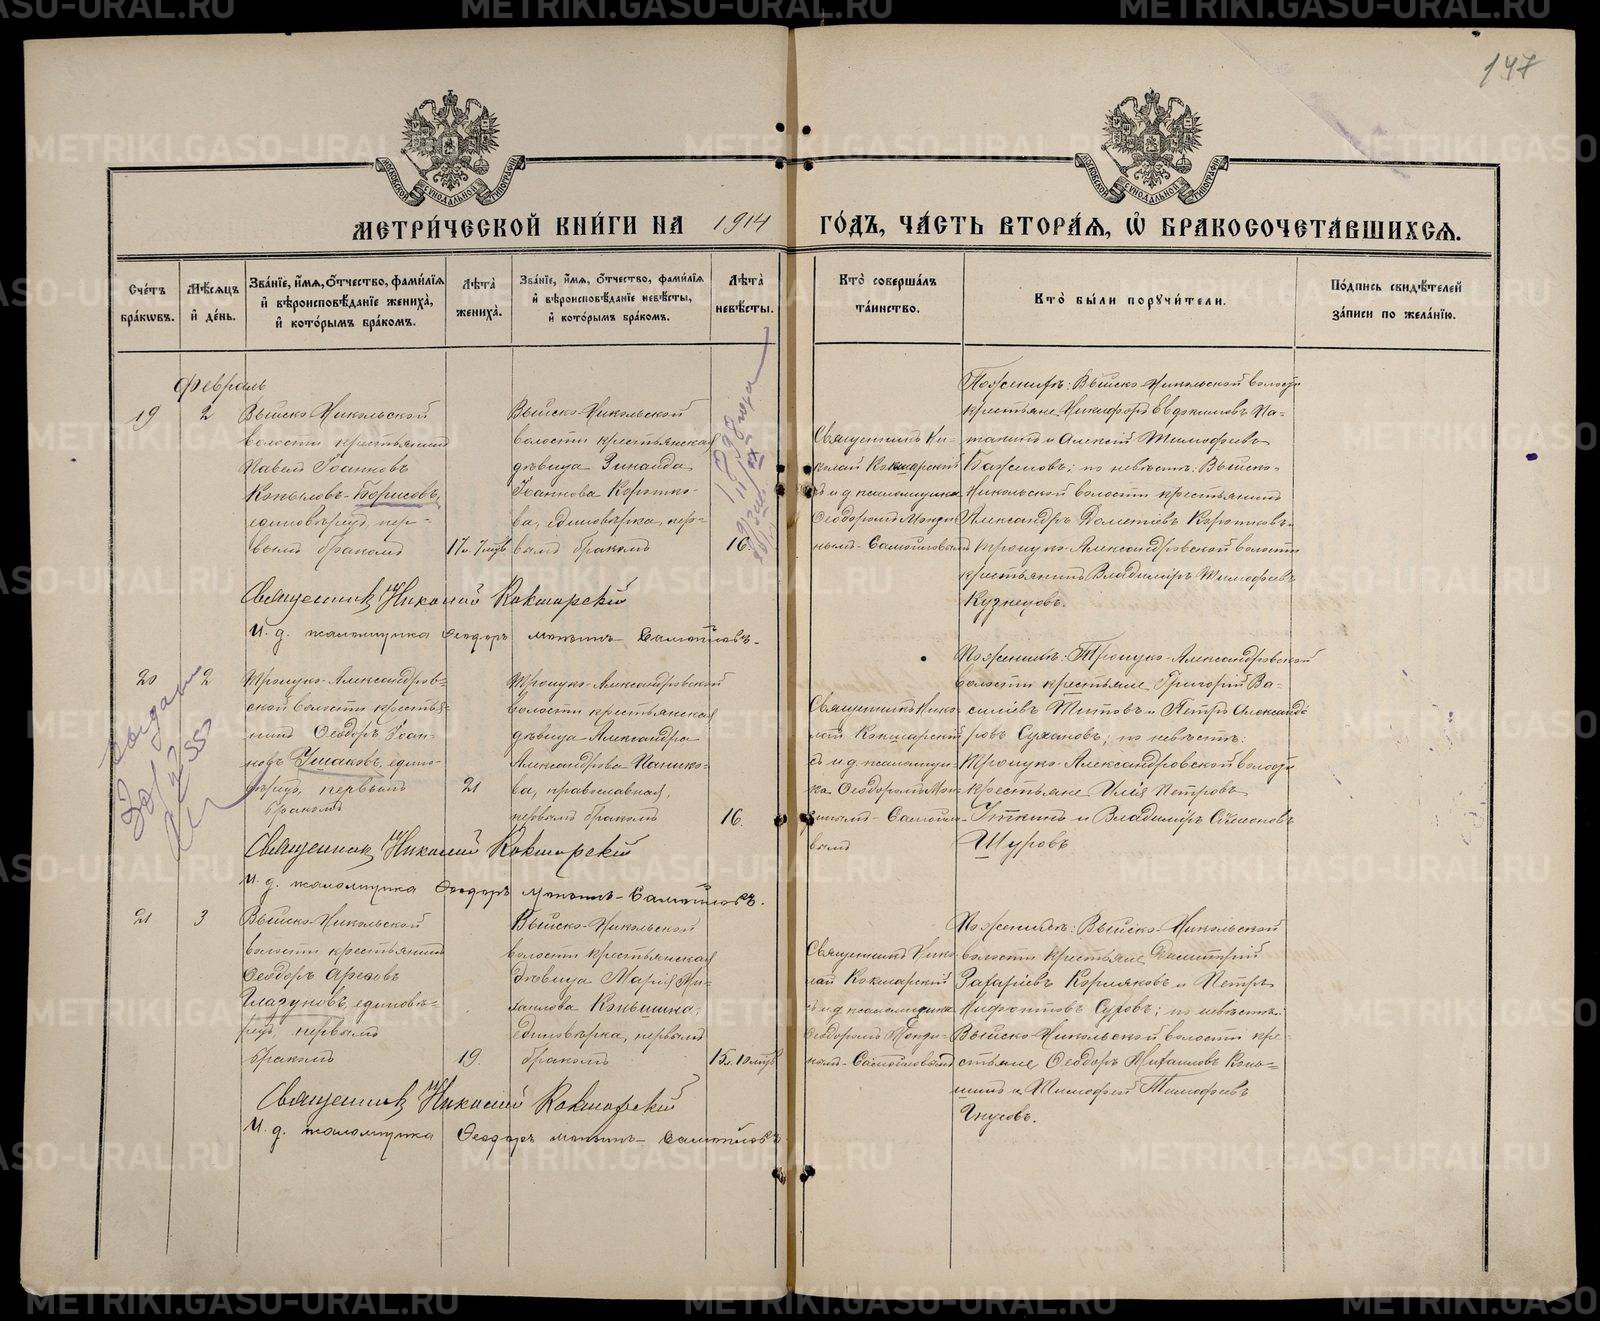 147
МОСКОВСКОЙ СѴНОДАЛЬНОЙ ТИПОГРАФІИ
МОСКОВСКОЙ СѴНОДАЛЬНОЙ ТИПОГРАФІИ
МЕТРИ́ЧЕСКОЙ КНИ́ГИ НА 1914 ГО́ДЪ, ЧА́СТЬ ВТОРА́Я, Ѡ БРАКОСОЧЕТА́ВШИХСЯ.
Сче́тъ бра́кѡвъ.
Мѣ́сяцъ и҆ де́нь.
Зва́нїе, и҆́мя, ѻ҆́тчество, фами́лїя и҆ вѣроисповѣ́данїе жениха̀, и҆ кото́рымъ бра́комъ.
Лѣ́та жениха̀.
Зва́нїе, и҆́мя, ѻ҆́тчество, фами́лїя и҆ вѣроисповѣ́данїе невѣ́сты, и҆ кото́рымъ бра́комъ.
Лѣ́та невѣ́сты.
Кто̀ соверша́лъ та́инство.
Кто̀ бы́ли порꙋчи́тели.
По́дпись свидѣ́телей за́писи по жела́нїю.
Февраль
19
2
Выйско-Никольской
волости крестьянинъ
Павелъ Іоанновъ
Копыловъ-Борисовъ,
единовѣрецъ, пер-
вымъ бракомъ
17 л. 7 мцвъ
Выйско-Никольской
волости крестьянская
дѣвица Зинаида
Іоаннова Коротко-
ва, единовѣрка, пер-
вымъ бракомъ
16.
Священникъ Ни-
колай Кокшарскій
съ и д. псаломщика
Ѳеодоромъ
Самойловымъ
По женихѣ: Выйско-Никольской волости
крестьяне Никифоръ Евдокимовъ Па-
и Алексѣй Тимофеевъ
Баженовъ; по невѣстѣ: Выйско-
Никольской волости крестьянинъ
Александръ Дометіевъ Коротковъ
Троицко-Александровской волости
крестьянинъ Владиміръ Тимофеевъ
Кузнецовъ.
Священникъ Николай Кокшарскій
И. д. псаломщика Ѳеодоръ Самойловъ.
20
2
Троицко-Александров-
ской волости крестья-
нинъ Ѳеодоръ Іоан-
новъ Ушаковъ, едино-
вѣрецъ, первымъ
бракомъ
21
Троицко-Александровской
волости крестьянская
дѣвица Александра
Александрова Панико-
ва, православная,
первымъ бракомъ
16.
Священникъ Нико-
лай Кокшарскій
съ и д. псаломщи-
ка Ѳеодоромъ
Самойло-
вымъ
По женихѣ: Троицко-Александровской
волости крестьяне Григорій Ва-
силіевъ Титовъ и Петръ Александ-
ровъ Сухановъ; по невѣстѣ:
Троицко-Александровской волости
крестьяне Илія Петровъ
Уткинъ и Владиміръ Симеоновъ
Шуровъ
Священникъ Николай Кокшарскій
И. д. псаломщика Ѳеодоръ Самойловъ.
21
3
Выйско-Никольской
волости крестьянинъ
Ѳеодоръ
Гладуновъ, единовѣ-
рецъ, первымъ
бракомъ
19.
Выйско-Никольской
волости крестьянская
дѣвица Марія Ми-
хаилова Коньшина,
единовѣрка, первымъ
бракомъ
15 л. 10 мцвъ
Священникъ Нико-
лай Кокшарскій
съ и д. псаломщика
Ѳеодоромъ
Самойловымъ
По женихѣ: Выйско-Никольской
волости крестьяне Димитрій
Захаріевъ Корляковъ и Петръ
по невѣстѣ:
Выйско-Никольской волости кре-
стьяне Ѳеодоръ Михаиловъ Конь-
шинъ и Тимофей Тимофеевъ
Гнусовъ.
Священникъ Николай Кокшарскій
И. д. псаломщика Ѳеодоръ Самойловъ
METRIKI.GASO-URAL.RU